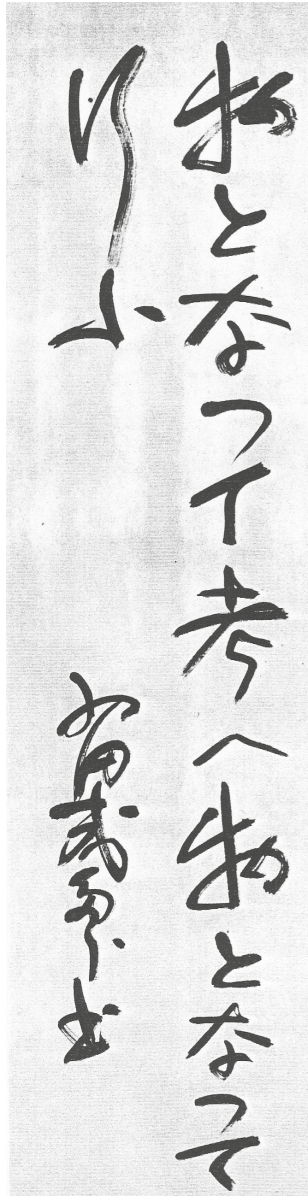 物となって考へ物となって
行ふ
西田幾多郎書